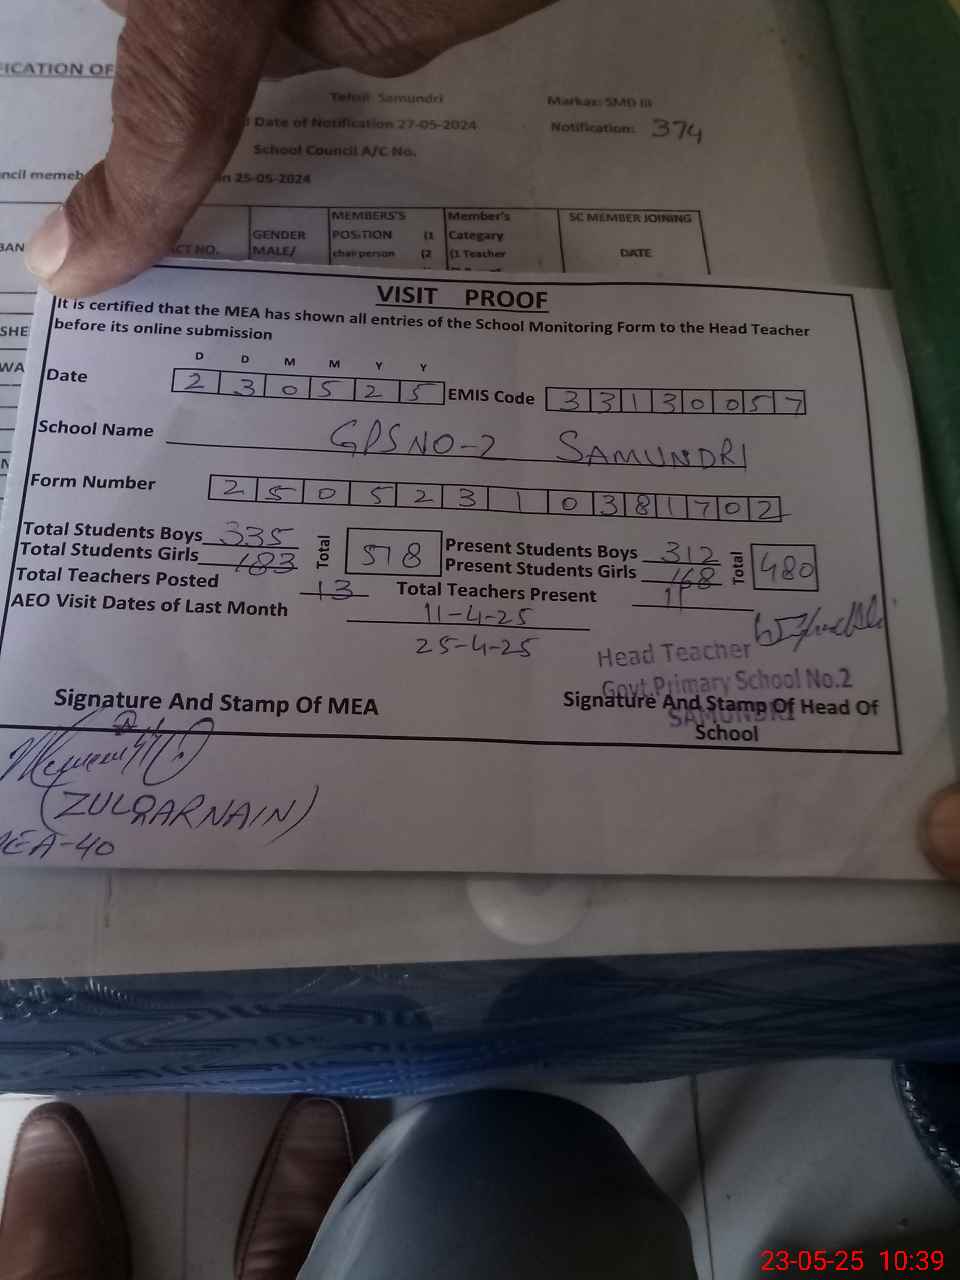 FICATION OF
Tehsil: Samundri
Markaz: SMD III
Date of Notification 27-05-2024
Notification: 374
School Council A/C No.
ncil memeb
n 25-05-2024
MEMBERS'S
Member's
SC MEMBER JOINING
GENDER
POSITION (1
Category
BAN
ACT NO.
MALE/
chairperson (2
(1 Teacher
DATE
VISIT PROOF
It is certified that the MEA has shown all entries of the School Monitoring Form to the Head Teacher
before its online submission
SHE
WA
D D M M Y Y
Date 2 3 0 5 2 5 EMIS Code 3 3 1 3 0 0 5 7
School Name GPS NO-2 SAMUNDRI
Form Number 2 5 0 5 2 3 1 0 3 8 1 7 0 2
Total Students Boys 335 Total 518 Present Students Boys 312 Total 480
Total Students Girls 183 Present Students Girls 168
Total Teachers Posted 13 Total Teachers Present 11
AEO Visit Dates of Last Month 11-4-25
25-4-25
Head Teacher
Govt. Primary School No.2
SAMUNDRI
Signature And Stamp Of MEA
Signature And Stamp Of Head Of
School
(ZULQARNAIN)
MEA-40
23-05-25 10:39